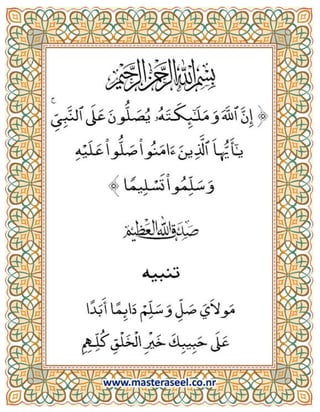 بِسْمِ اللَّهِ الرَّحْمَٰنِ الرَّحِيمِ
﴿ إِنَّ ٱللَّهَ وَمَلَـٰٓئِكَتَهُۥ يُصَلُّونَ عَلَى ٱلنَّبِىِّۚ
يَـٰٓأَيُّهَا ٱلَّذِينَ ءَامَنُوا۟ صَلُّوا۟ عَلَيْهِ
وَسَلِّمُوا۟ تَسْلِيمًا ﴾
صدق الله العظيم
تنبيه
مَولاَيَ صَلِّ وَسَلِّمْ دَايِمًا أَبَدًا
عَلَى حَبِيبِكَ خَيْرِ الْخَلْقِ كُلِّهِمِ
www.masteraseel.co.nr